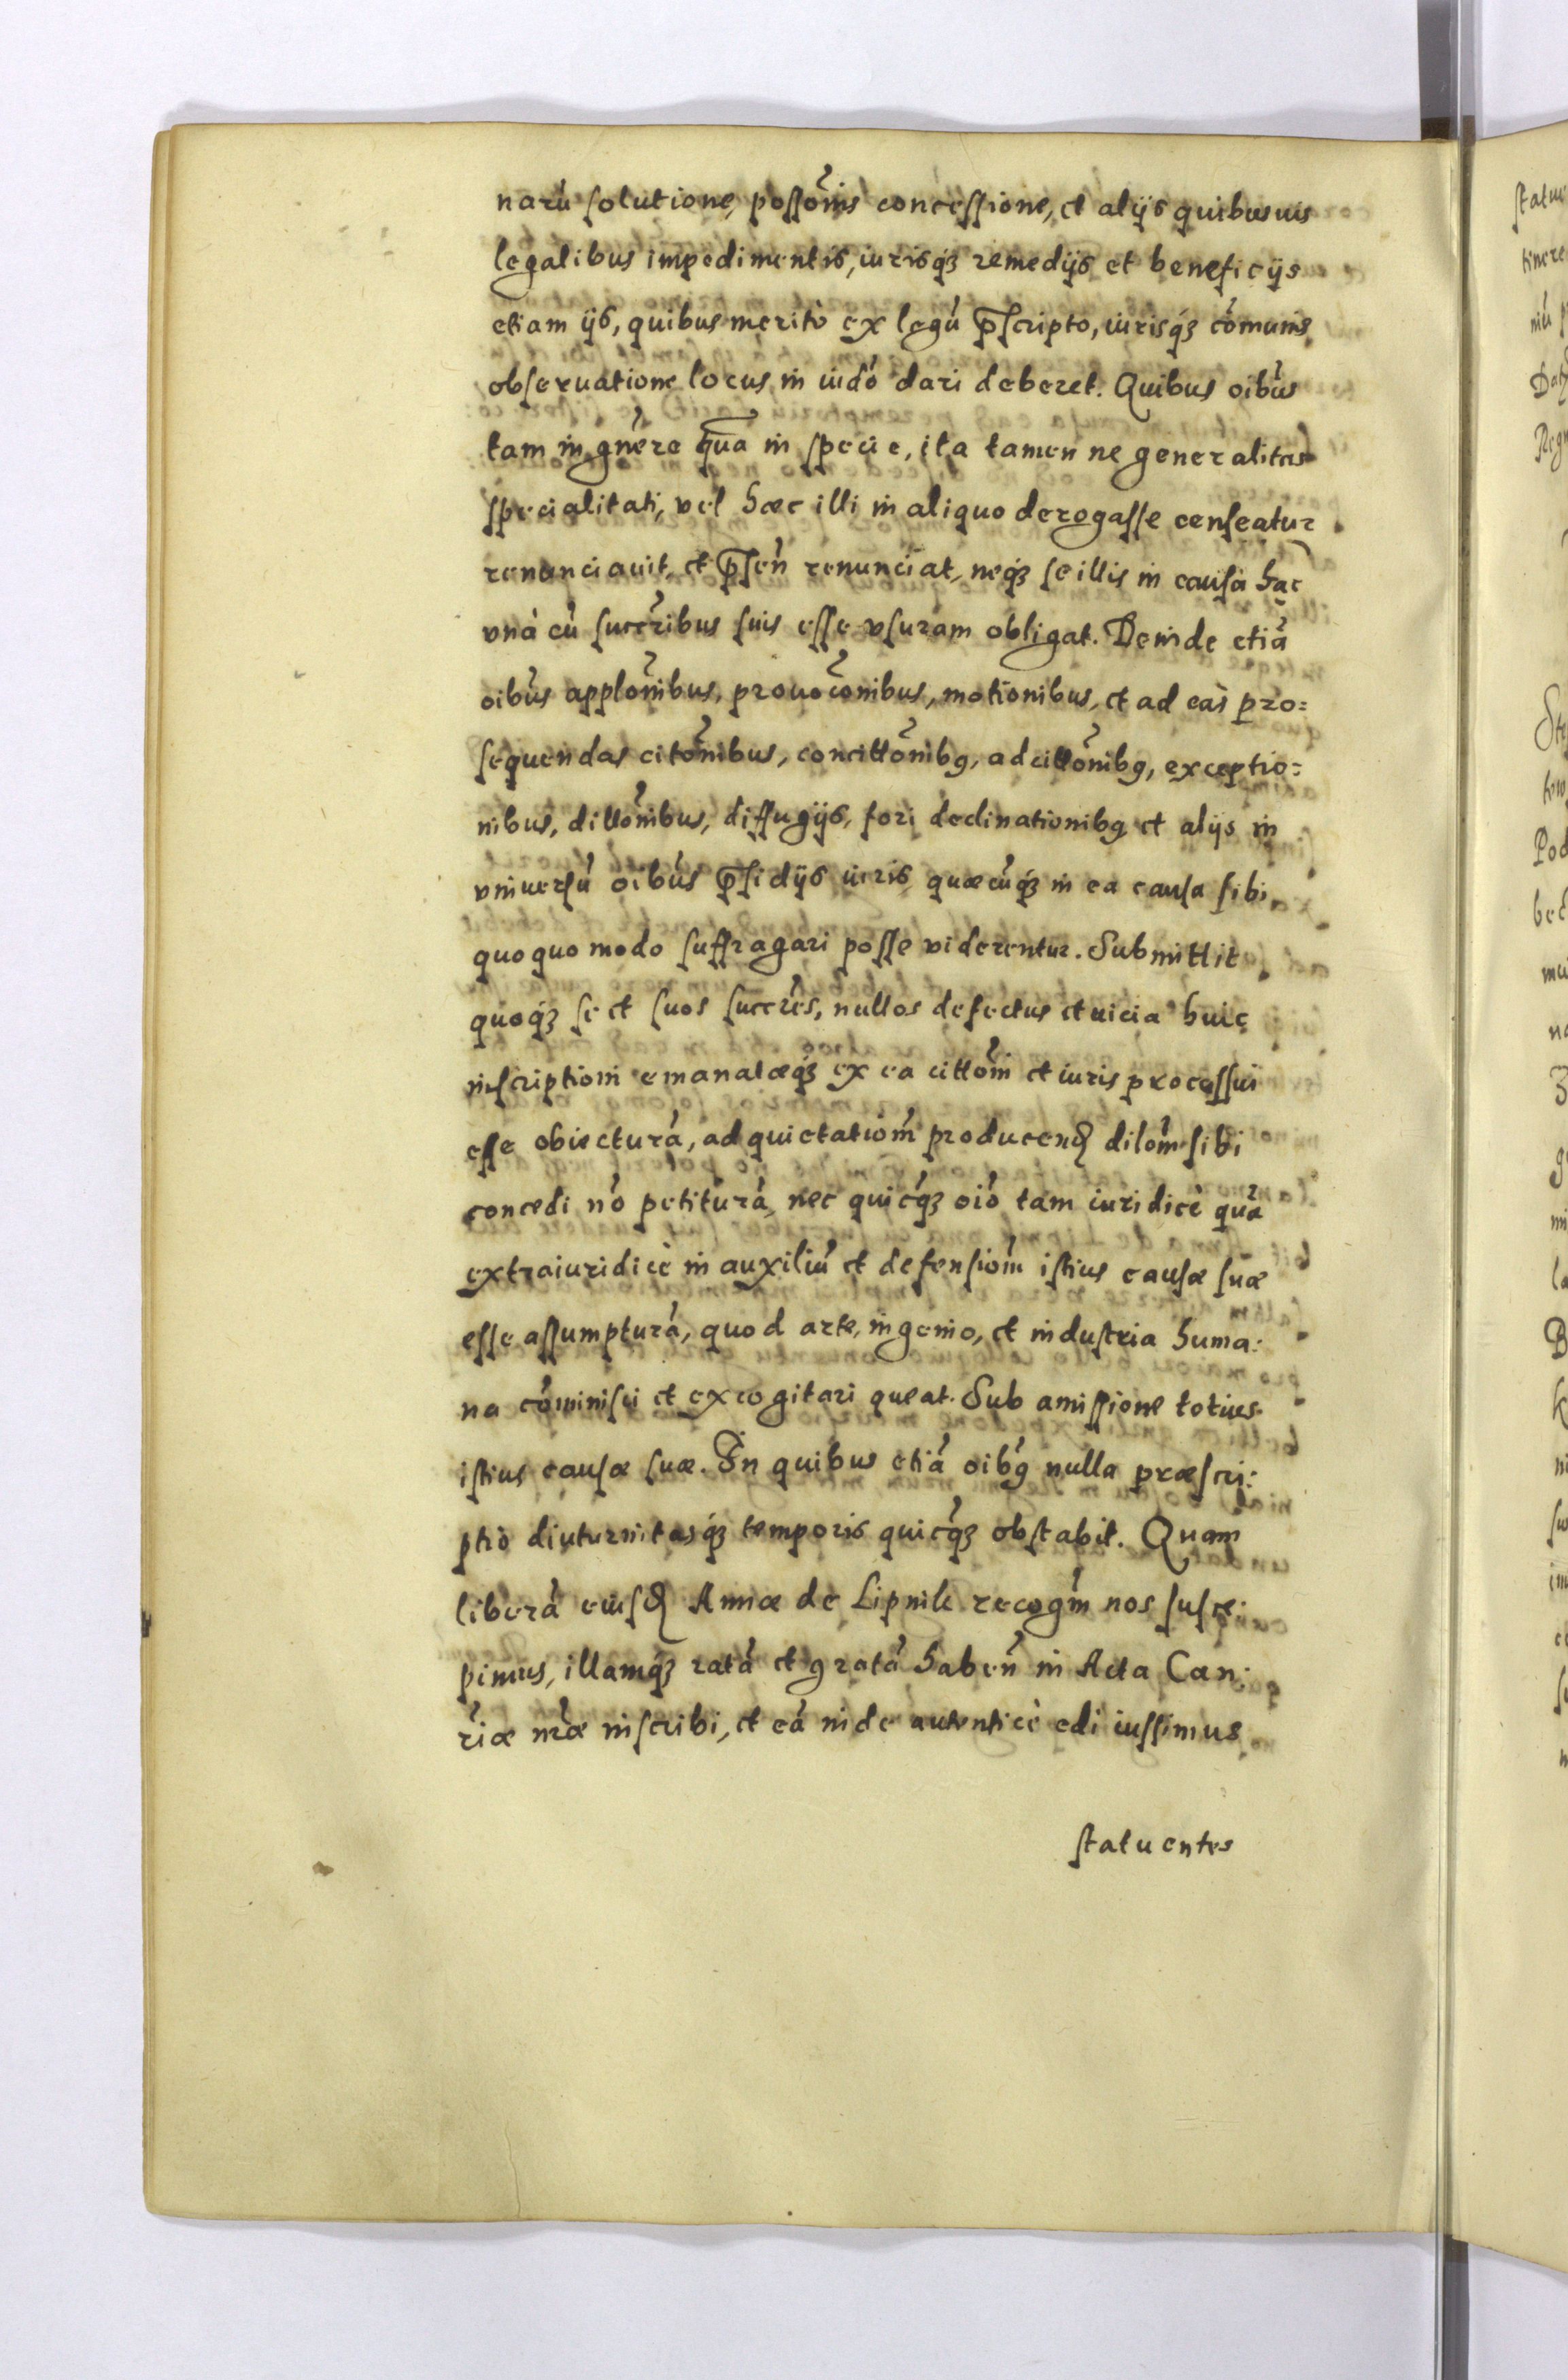 narũ solutione, possõnis concessione, et alijs quibusuis
legalibus impedimentis, iurisq́ꝫ remedijs et beneficijs
etiam ijs, quibus meritò ex legũ p̃scripto, iurisq́ꝫ cõmunis
obseruatione locus in iudõ dari deberet. Quibus oĩbus
tam in gñere quã in specie, ita tamen ne generalitas
specialitati, vel hæc illi in aliquo derogasse censeatur
renunciauit, et p̃señ renunciat, neq́ꝫ se illis in causa hac
vnà cũ succr̃ibus suis esse vsuram obligat. Deinde etiã
oĩbus applõnibus, prouocõnibus, motionibus, et ad eas pro=
sequendas citõnibus, concittõnibꝯ, adcittõnibꝯ, exceptio=
nibus, dillõnibus, diffugijs, fori declinationibꝯ et alijs in
vniuersũ oĩbus p̃sidijs iuris, quæcũq́ꝫ in ea causa sibi
quoquo modo suffragari posse viderentur. Submittit
quoq́ꝫ se et suos succr̃es, nullos defectus et uicia huic
inscriptioni emanatæq́ꝫ ex ea cittõni et iuris processui
esse obiecturã, ad quietatiom̃ producenꝺ dilom̃ sibi
concedi nõ petiturã, nec quicq́ꝫ oĩo tam iuridicè quã
extraiuridicè in auxiliũ et defensiom̃ istius causæ suæ
esse assumpturã, quod arte, ingenio, et industria huma:
na cõminisci et excogitari queat. Sub amissione totius
istius causæ suæ. In quibus etiã oĩbꝯ nulla præscri:
ptio diuturnitasq́ꝫ temporis quicq́ꝫ obstabit. Quam
liberã eiusꝺ Annæ de Lipnik recogm̃ nos susce:
pimus, illamq́ꝫ ratã et gratã habeñ in Acta Can:
r̃iæ nr̃æ inscribi, et eã inde autenticè edi iussimus
statuentes